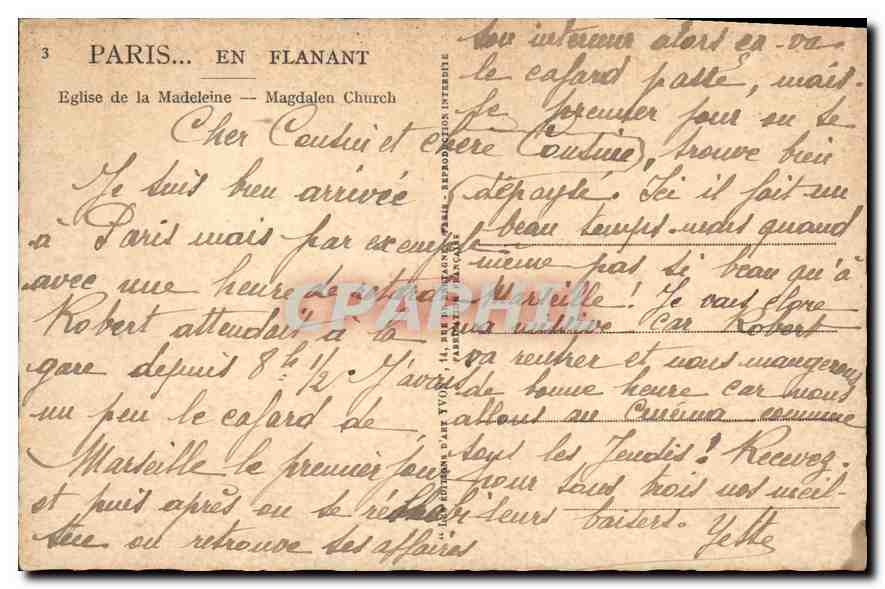 3 PARIS... EN FLANANT
Eglise de la Madeleine — Magdalen Church
Cher Cousin et chère Cousine,
Je suis bien arrivée
à Paris mais par exemple
avec une heure de retard
Robert attendait à la
gare depuis 8h 1/2. J'avais
un peu le cafard de
Marseille le premier jour
et puis après on se réhabi
tue on retrouve ses affaires
"LES EDITIONS D'ART YVON", 14, RUE DE BRETAGNE, PARIS - REPRODUCTION INTERDITE
FABRICATION FRANÇAISE
son intérieur alors ça va
le cafard passé, mais
le premier jour on se
trouve bien
dépaysé. Ici il fait un
beau temps mais quand
même pas si beau qu'à
Marseille! Je vais clore
ma missive car Robert
va rentrer et nous mangerons
de bonne heure car nous
allons au Cinéma comme
tous les Jeudis! Recevez
pour tous trois nos meil-
leurs baisers. Yette
CPAPHIL